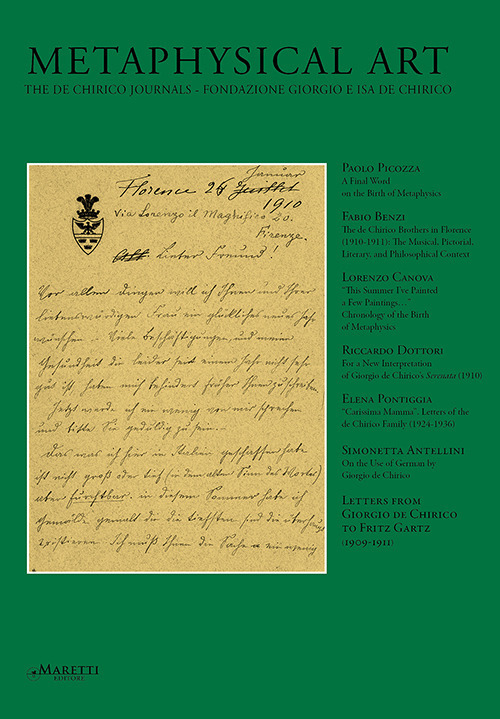 METAPHYSICAL ART
THE DE CHIRICO JOURNALS - FONDAZIONE GIORGIO E ISA DE CHIRICO
Januar
Florence 26 Juillet
1910
Via Lorenzo il Magnifico 20.
Firenze.
Lieber Freund!
Vor allen Dingen will ich Ihnen und Ihrer
liebenswürdigen Frau ein glückliches neues Jahr
wünschen... Viele Beschäftigungen, und meine
Gesundheit die leider seit einem Jahr nicht sehr
gut ist, haben mich behindert früher Ihnen zu schreiben
Jetzt werde ich ein wenig von mir sprechen
und bitte Sie geduldig zu sein. —
Das was ich hier in Italien geschaffen habe
ist nicht groß oder tief (in dem alten Sinn des Wortes)
aber furchtbar. in diesem Sommer habe ich
Gemälde gemalt die die tiefsten sind die überhaupt
existieren. Ich muß Ihnen die Sache ein wenig
PAOLO PICOZZA
A Final Word
on the Birth of Metaphysics
FABIO BENZI
The de Chirico Brothers in Florence
(1910-1911): The Musical, Pictorial,
Literary, and Philosophical Context
LORENZO CANOVA
“This Summer I’ve Painted
a Few Paintings…”
Chronology of the Birth
of Metaphysics
RICCARDO DOTTORI
For a New Interpretation
of Giorgio de Chirico’s Serenata (1910)
ELENA PONTIGGIA
“Carissima Mamma”. Letters of the
de Chirico Family (1924-1936)
SIMONETTA ANTELLINI
On the Use of German by
Giorgio de Chirico
LETTERS FROM
GIORGIO DE CHIRICO
TO FRITZ GARTZ
(1909-1911)
MARETTI
EDITORE